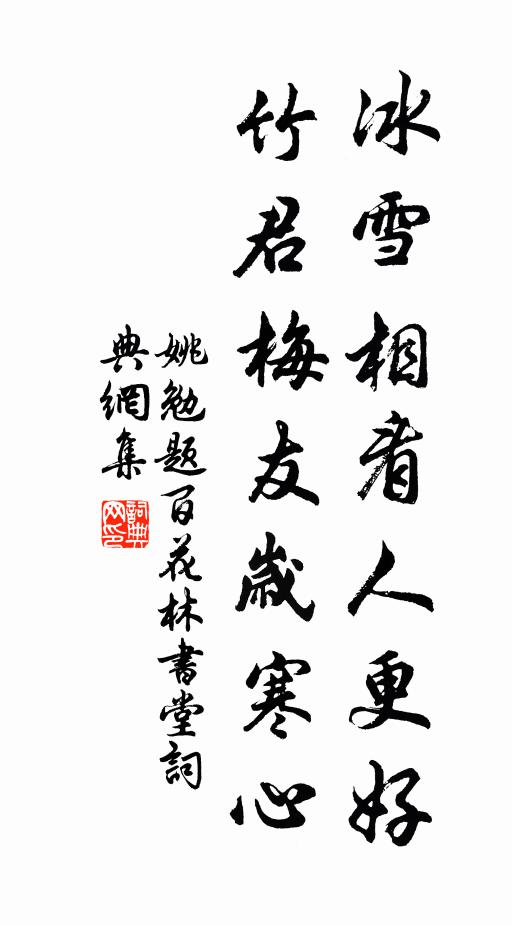 冰雪相看人更好
竹君梅友歲寒心
姚勉題百花林書堂詞
典網集
詞典網印